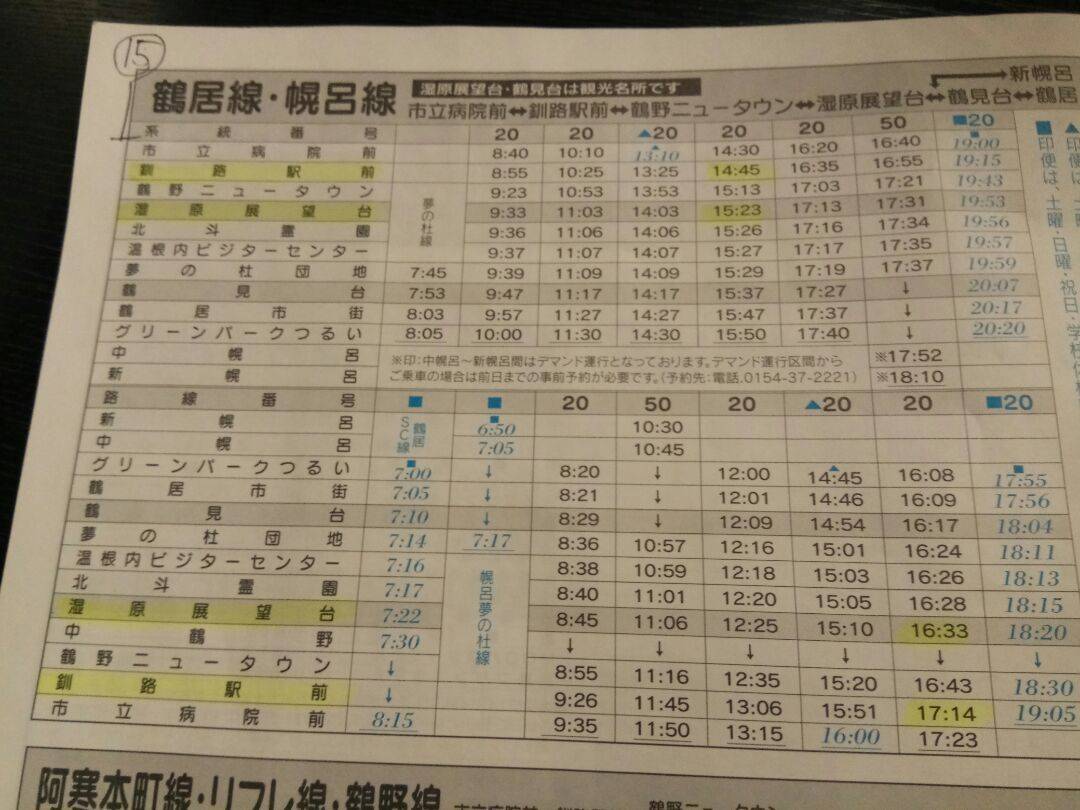 15
鶴居線・幌呂線 湿原展望台・鶴見台は観光名所です
新幌呂
市立病院前⇔釧路駅前⇔鶴野ニュータウン⇔湿原展望台⇔鶴見台⇔鶴居
系統番号 20 20 ▲20 20 20 50 ■20
市立病院前 8:40 10:10 13:10 14:30 16:20 16:40 19:00
釧路駅前 8:55 10:25 13:25 14:45 16:35 16:55 19:15
鶴野ニュータウン 9:23 10:53 13:53 15:13 17:03 17:21 19:43
湿原展望台 9:33 11:03 14:03 15:23 17:13 17:31 19:53
北斗霊園 9:36 11:06 14:06 15:26 17:16 17:34 19:56
温根内ビジターセンター 9:37 11:07 14:07 15:27 17:17 17:35 19:57
夢の杜線
夢の杜団地 7:45 9:39 11:09 14:09 15:29 17:19 17:37 19:59
鶴見台 7:53 9:47 11:17 14:17 15:37 17:27 ↓ 20:07
鶴居市街 8:03 9:57 11:27 14:27 15:47 17:37 ↓ 20:17
グリーンパークつるい 8:05 10:00 11:30 14:30 15:50 17:40 ↓ 20:20
中幌呂 ※17:52
新幌呂 ※18:10
※印:中幌呂～新幌呂間はデマンド運行となっております。デマンド運行区間から
ご乗車の場合は前日までの事前予約が必要です。(予約先:電話.0154-37-2221)
路線番号 ■ ■ 20 50 20 ▲20 20 ■20
新幌呂 6:50 10:30
中幌呂 7:05 10:45
鶴居
SC線
グリーンパークつるい 7:00 ↓ 8:20 ↓ 12:00 14:45 16:08 17:55
鶴居市街 7:05 ↓ 8:21 ↓ 12:01 14:46 16:09 17:56
鶴見台 7:10 ↓ 8:29 ↓ 12:09 14:54 16:17 18:04
夢の杜団地 7:14 7:17 8:36 10:57 12:16 15:01 16:24 18:11
温根内ビジターセンター 7:16 8:38 10:59 12:18 15:03 16:26 18:13
北斗霊園 7:17 8:40 11:01 12:20 15:05 16:28 18:15
湿原展望台 7:22 8:45 11:06 12:25 15:10 16:33 18:20
中鶴野 7:30 ↓ ↓ ↓ ↓ ↓ ↓
鶴野ニュータウン ↓ 8:55 11:16 12:35 15:20 16:43 18:30
釧路駅前 ↓ 9:26 11:45 13:06 15:51 17:14 19:05
市立病院前 8:15 9:35 11:50 13:15 16:00 17:23
幌呂夢の杜線
■印便は、土曜・日曜・祝日・学校
▲印便は
阿寒本町線・リフレ線・鶴野線